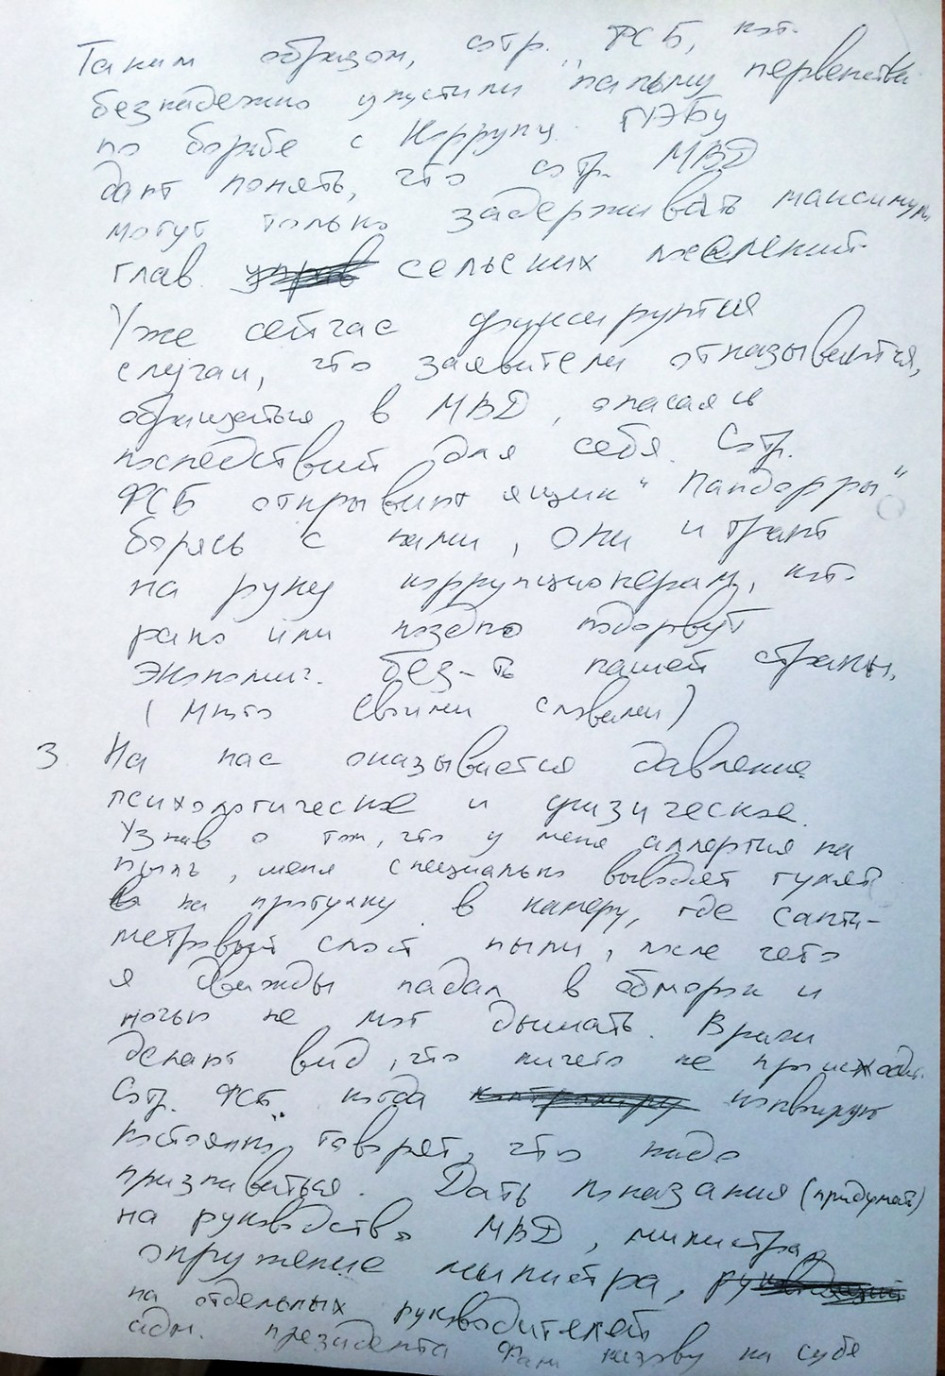 Таким образом, сотр. ФСБ, кот.
безнадежно упустили "пальму первенства
по борьбе с Коррупц. ГУЭБу
дают понять, что сотр. МВД
могут только задерживать максимум
глав. сельских поселений.
Уже сейчас фиксируются
случаи, что заявители отказываются,
обращаться в МВД, опасаясь
последствий для себя. Сотр.
ФСБ открывают ящик "Пандорры"
борясь с нами, они играют
на руку коррупционерам, кот.
рано или поздно подорвут
экономич. без-ть нашей страны.
(Много своими словами)
3. На нас оказывается давление
психологическое и физическое.
Узнав о том, что у меня аллергия на
пыль, меня специально выводят гулять
на прогулку в камеру, где санти-
метровый слой пыли, после чего
я дважды падал в обморок и
ночью не мог дышать. Врачи
делают вид, что ничего не происходит.
Сотр. ФСБ когда конвоируют
постоянно говорят, что надо
признаваться. Дать показания (придумать)
на руководство МВД, министра,
окружение министра,
на отдельных руководителей
адм. президента Фам назову на суде